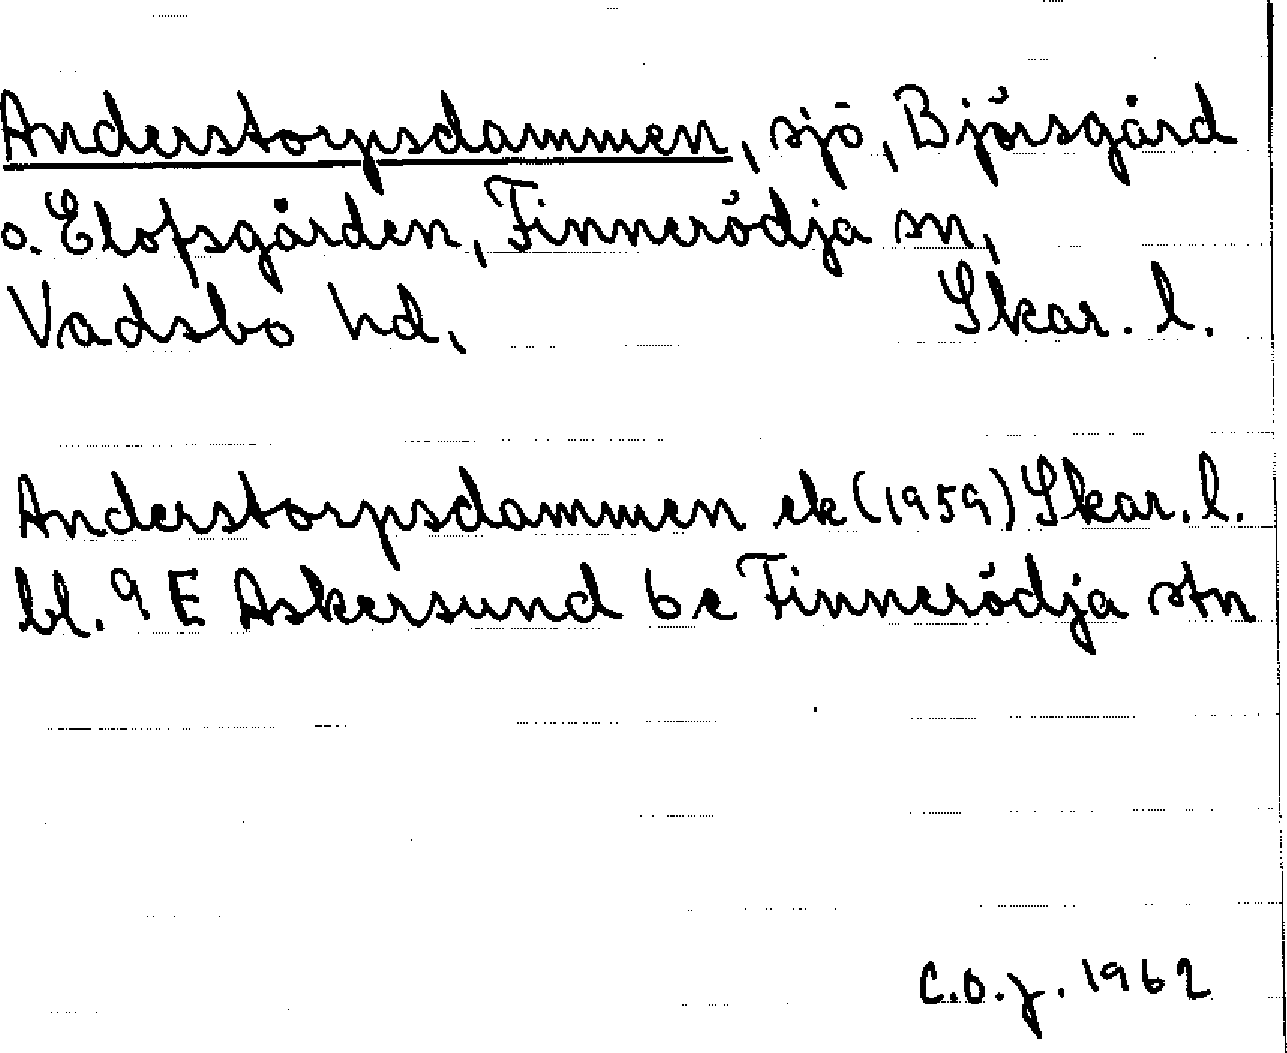 Anderstorpsdammen, sjö, Björsgård
o. Elofsgården, Finnerödja sn,
Vadsbo hd, Skar. l.
Anderstorpsdammen ek (1959) Skar. l.
bl. 9 E Askersund 6c Finnerödja stn
C.O.J. 1962